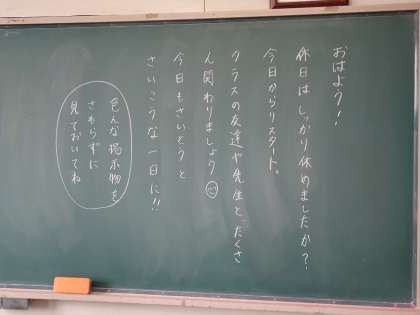 おはよう!
休日はしっかり休めましたか?
今日からリスタート。
クラスの友達や先生と、たくさ
ん関わりましょう
今日もさいとうと
さいこうな一日に!!
色んな掲示物を
さわらずに
見ておいてね